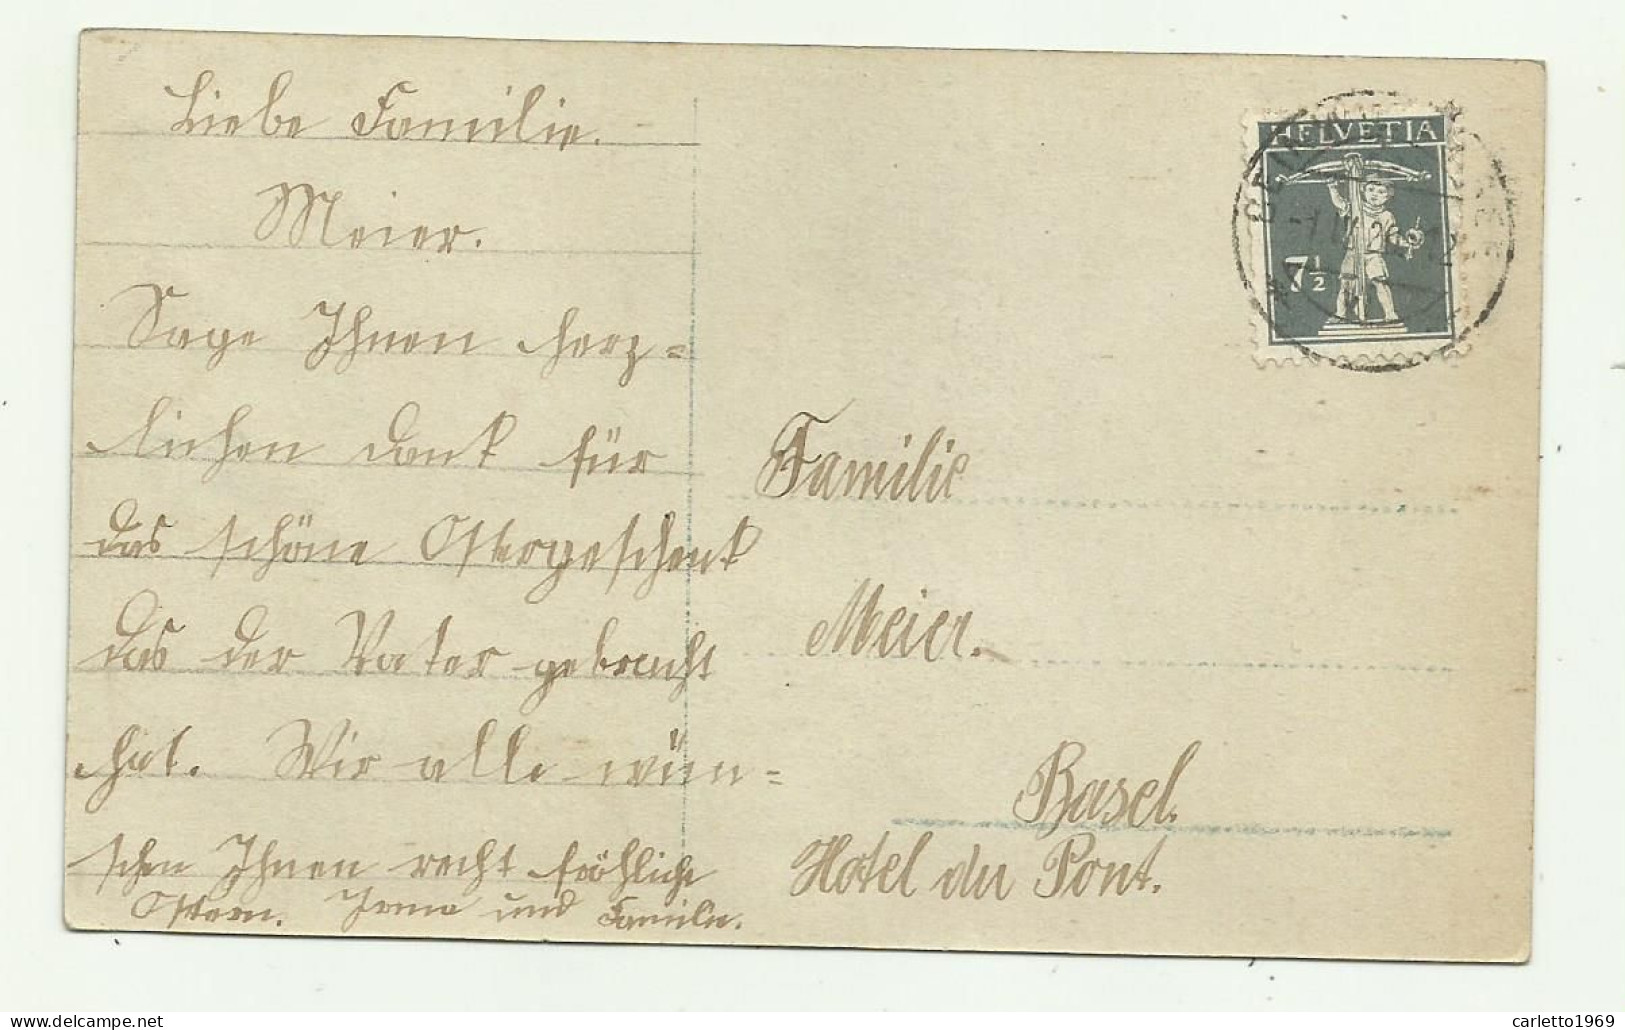 Liebe Familie.
Meier.
Sage Ihnen herz=
lichen Dank für
das schöne Ostergeschenk
das der Vater gebracht
hat. Wir alle wün=
schen Ihnen recht fröhliche
Ostern. Irma und Familie.
HELVETIA
7½
Familie
Meier.
Basel.
Hotel du Pont.
carletto1969
www.delcampe.net